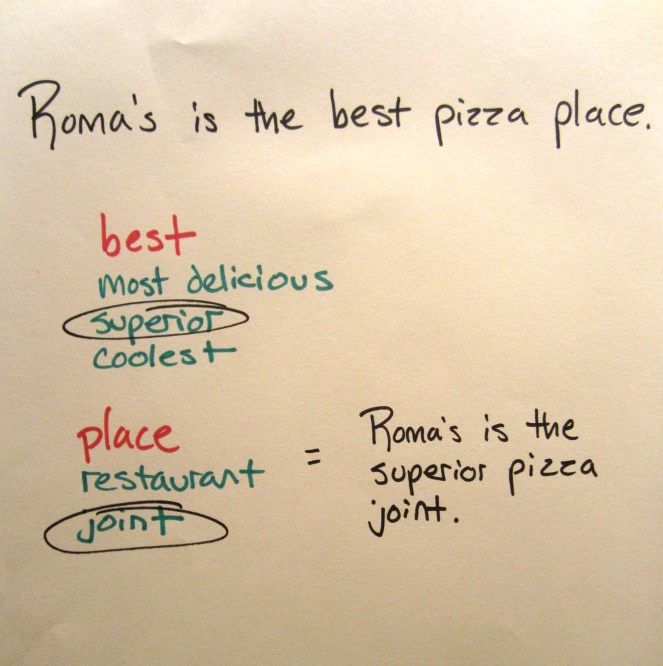 Roma's is the best pizza place.
best
most delicious
superior
coolest
place
restaurant
joint
=
Roma's is the
superior pizza
joint.